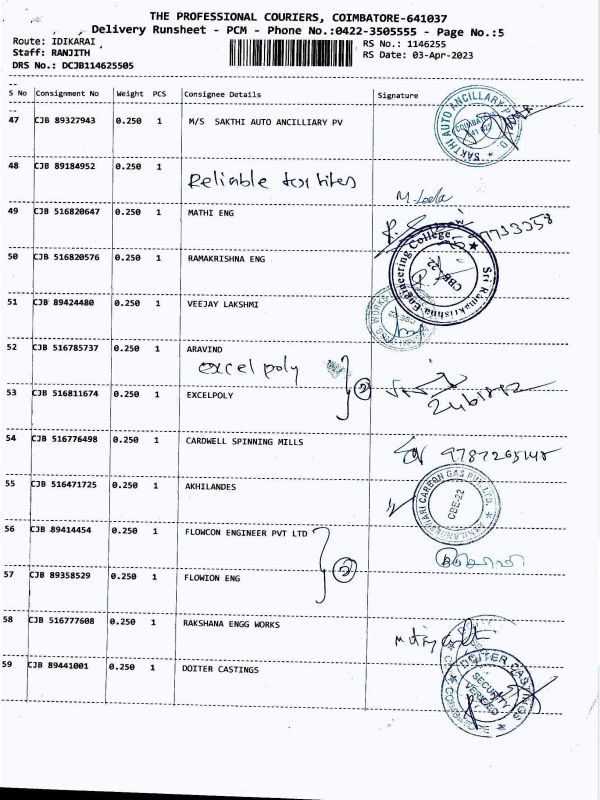 THE PROFESSIONAL COURIERS, COIMBATORE-641037
Delivery Runsheet - PCM - Phone No.:0422-3505555 - Page No.:5
Route: IDIKARAI RS No.: 1146255
Staff: RANJITH RS Date: 03-Apr-2023
DRS No.: DCJB114625505
S No Consignment No Weight PCS Consignee Details Signature
47 CJB 89327943 0.250 1 M/S SAKTHI AUTO ANCILLIARY PV
SAKTHI AUTO ANCILLARY P LTD
48 CJB 89184952 0.250 1
Reliable
M. Leela
49 CJB 516820647 0.250 1 MATHI ENG
50 CJB 516820576 0.250 1 RAMAKRISHNA ENG
Sri Ramakrishna Engineering College
CBE-22
51 CJB 89424480 0.250 1 VEEJAY LAKSHMI
52 CJB 516785737 0.250 1 ARAVIND
excel poly
53 CJB 516811674 0.250 1 EXCELPOLY
2
54 CJB 516776498 0.250 1 CARDWELL SPINNING MILLS
9787265148
55 CJB 516471725 0.250 1 AKHILANDES
AKHILANDESHWARI CARBON GAS PVT. LTD.
CBE-22
56 CJB 89414454 0.250 1 FLOWCON ENGINEER PVT LTD
2
57 CJB 89358529 0.250 1 FLOWION ENG
58 CJB 516777608 0.250 1 RAKSHANA ENGG WORKS
59 CJB 89441001 0.250 1 DOITER CASTINGS
DOITER CASTINGS
SECURITY